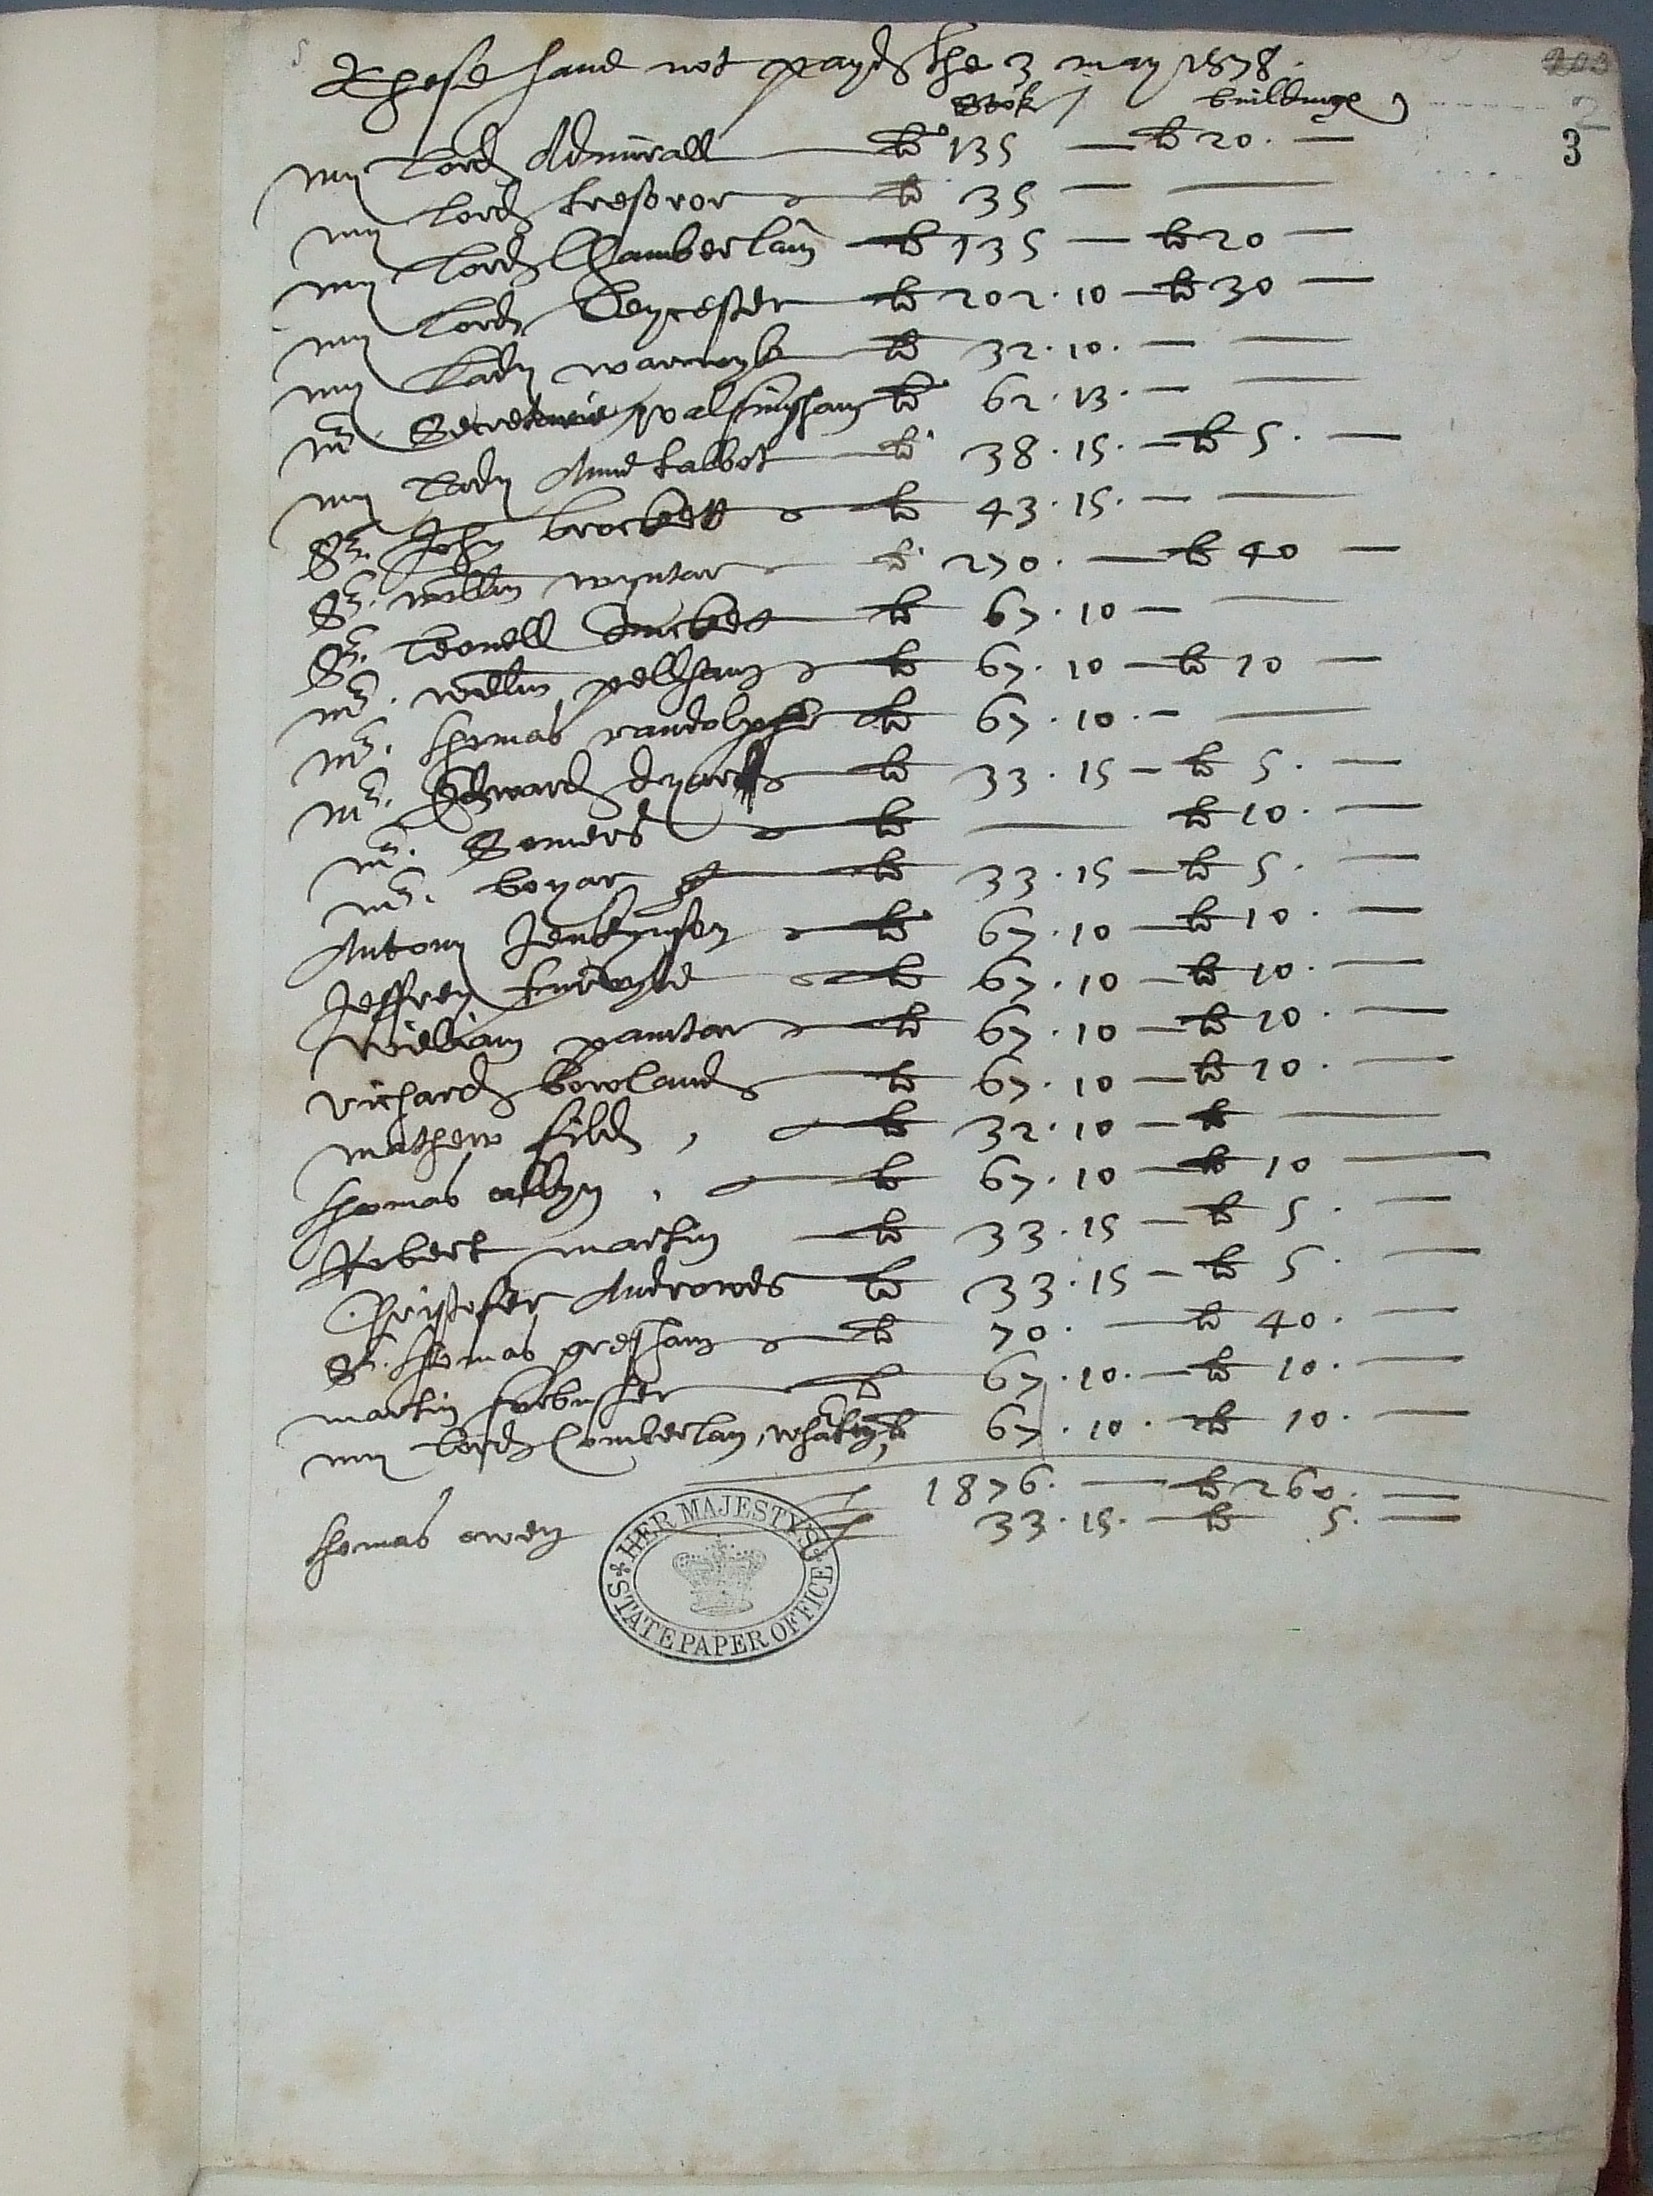 These have not payd the 3 may 1578.
Stok / buildinge
203
2
3
my Lord Admirall — ll 135 — ll 20. —
my lord tresoror — ll 35 — —
my Lord Chamberlain — ll 135 — ll 20 —
my Lord Leycester — ll 202.10 — ll 30 —
my Lady warwyk — ll 32.10. — —
mr Secretarie walsingham ll 62.13. — —
my Lady Anne talbot — ll 38.15. — ll 5. —
Sr. John brockett — ll 43.15. — —
Sr. willm wyntar — ll 270. — ll 40 —
Sr. Leonell ducket — ll 67.10 — —
mr. willm pellham — ll 67.10 — ll 10 —
mr. thomas randolphe — ll 67.10. — —
mr. Edward dyar — ll 33.15 — ll 5. —
mr. Somers — ll — ll 10. —
mr. boyar — ll 33.15 — ll 5. —
Antony Jenkynson — ll 67.10 — ll 10. —
Jeffrey turvyle — ll 67.10 — ll 10. —
William paintar — ll 67.10 — ll 10. —
richard bowland — ll 67.10 — ll 10. —
mathew fild, — ll 32.10 — ll —
thomas allyn, — ll 67.10 — ll 10 —
Robert martin — ll 33.15 — ll 5. —
Christofer Androwes ll 33.15 — ll 5. —
Sr. thomas gresham — ll 70. — ll 40. —
martin furbusher — ll 67.10. — ll 10. —
my Lord Comberlan, ll 67.10. — ll 10. —
ll 1876. — ll 260. —
thomas owen ll 33.15. — ll 5. —
HER MAJESTY'S
STATE PAPER OFFICE